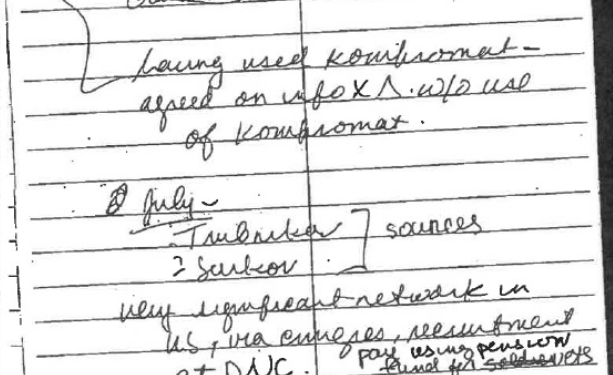 having used kompromat -
agreed on info X Λ. w/o use
of kompromat.
July -
. Trubnikov ] sources
? Surkov . ]
very significant network in
US, via emigres, recruitment
pay using pension
at DNC. fund for